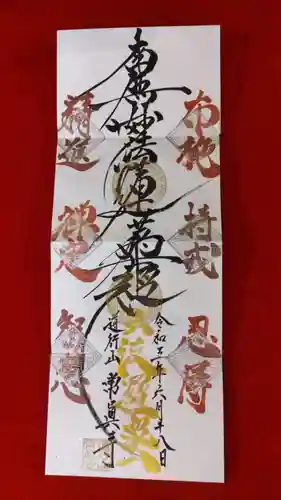 布施
持戒
忍辱
令和三年六月十八日
南無妙法蓮華経
遊行山 常眞寺
精進
禅定
智慧